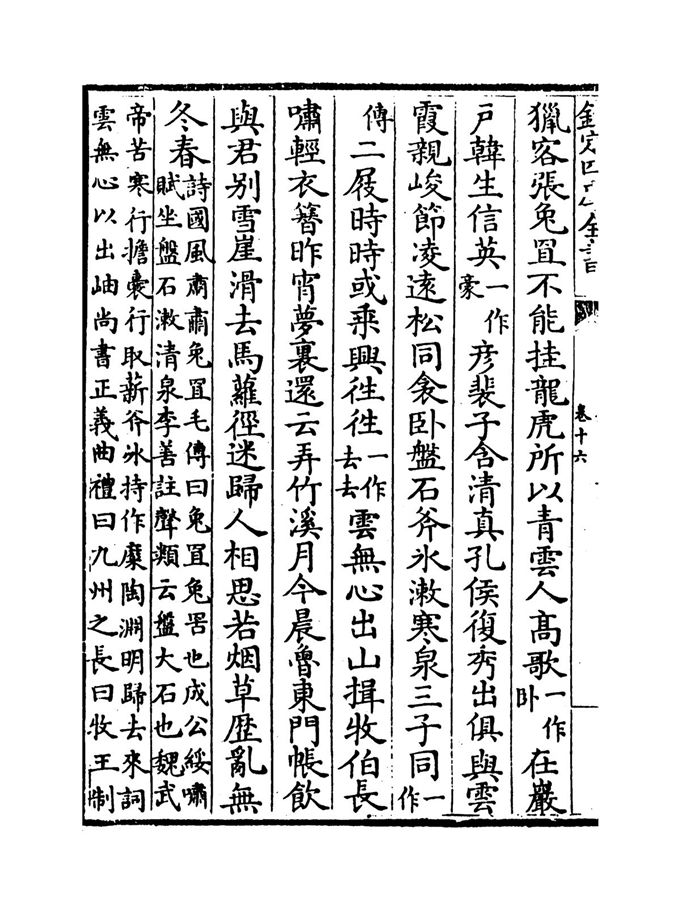 欽定四庫全書
卷十六
獵客張兔罝不能挂龍虎所以青雲人高歌一作卧在巖
戸韓生信英一作豪彦裴子含清真孔侯復秀出俱與雲
霞親峻節凌逺松同衾卧盤石斧氷漱寒泉三子同一作
傳二屐時時或乘興徃徃一作去去雲無心出山揖牧伯長
嘯輕衣簪昨宵夢裏還云弄竹溪月今晨魯東門帳飲
與君别雪崖滑去馬蘿徑迷歸人相思若烟草歴亂無
冬春詩國風肅肅兔罝毛傳曰兔罝兔罟也成公綏嘯
賦坐盤石漱清泉李善註聲類云盤大石也魏武
帝苦寒行擔囊行取薪斧氷持作糜陶淵明歸去來詞
雲無心以出岫尚書正義曲禮曰九州之長曰牧王制